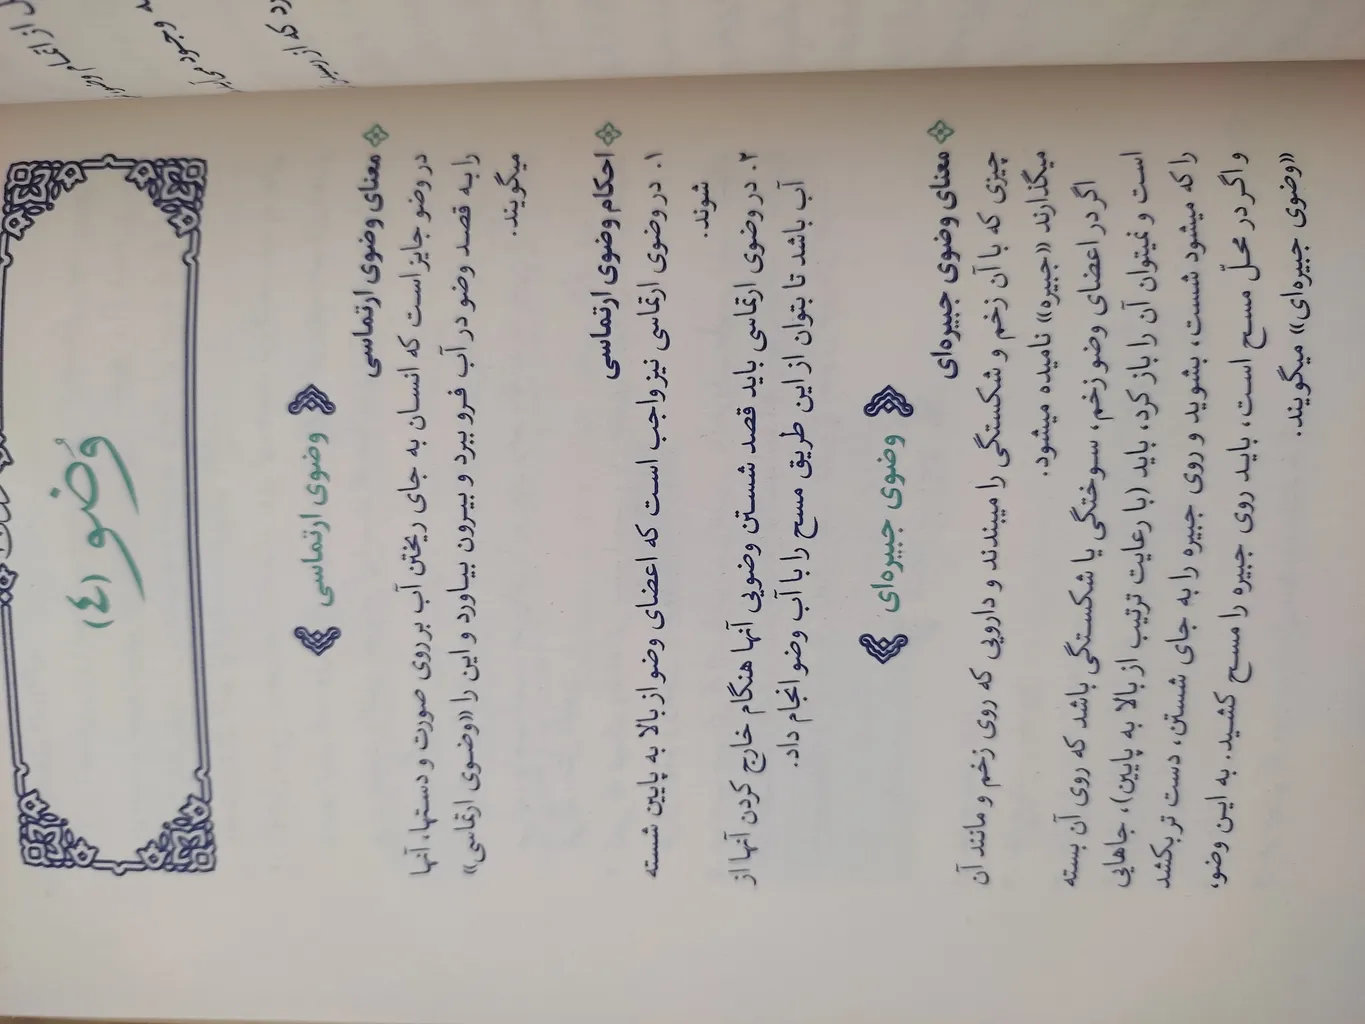 وُضو (٤)
وضوی ارتماسی
معنای وضوی ارتماسی
در وضو جایز است که انسان به جای ریختن آب بر روی صورت و دستها، آنها
را به قصد وضو در آب فرو ببرد و بیرون بیاورد و این را «وضوی ارتماسی»
میگویند.
احکام وضوی ارتماسی
۱. در وضوی ارتماسی نیز واجب است که اعضای وضو از بالا به پایین شسته
شوند.
۲. در وضوی ارتماسی باید قصد شستن وضویی آنها هنگام خارج کردن آنها از
آب باشد تا بتوان از این طریق مسح را با آب وضو انجام داد.
وضوی جبیره‌ای
معنای وضوی جبیره‌ای
چیزی که با آن زخم و شکستگی را میبندند و دارویی که روی زخم و مانند آن
میگذارند «جبیره» نامیده میشود.
اگر در اعضای وضو زخم، سوختگی یا شکستگی باشد که روی آن بسته
است و نمیتوان آن را باز کرد، باید (با رعایت ترتیب از بالا به پایین)، جاهایی
را که میشود شست، بشوید و روی جبیره را به جای شستن، دست تر بکشد
و اگر در محلّ مسح است، باید روی جبیره را مسح کشید. به این وضو،
«وضوی جبیره‌ای» میگویند.